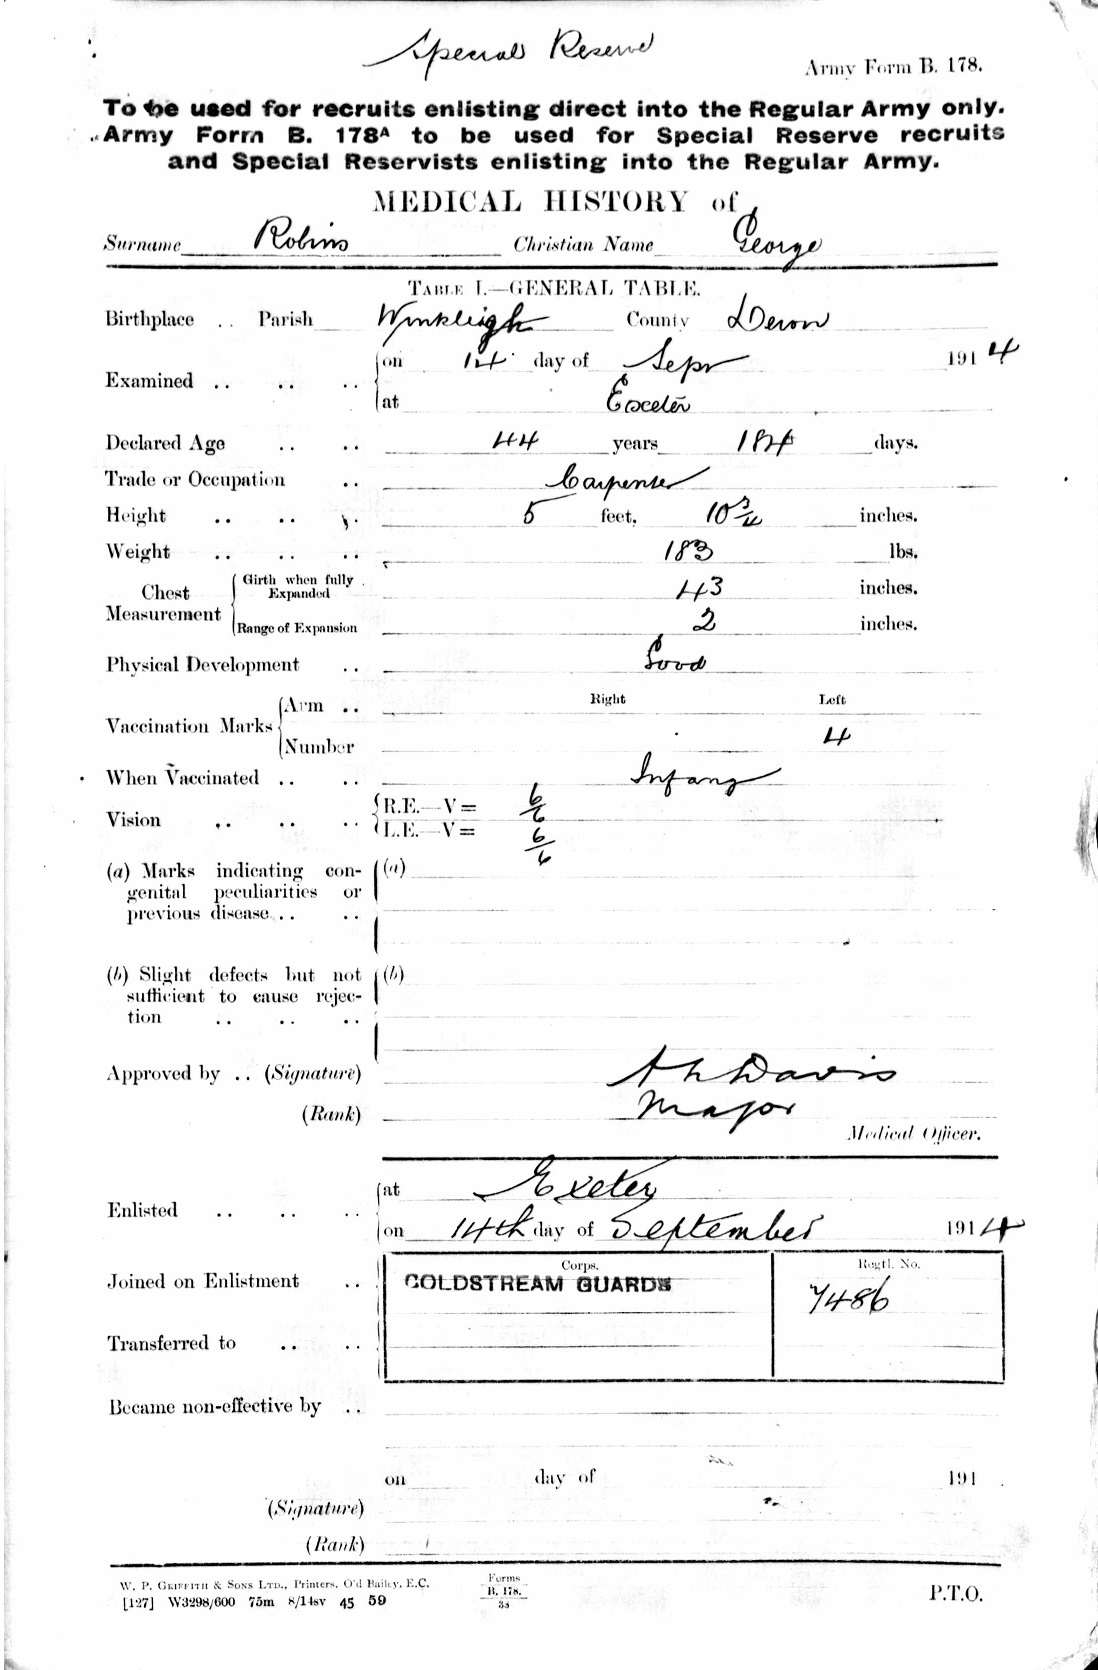 Special Reserve
Army Form B. 178.
To be used for recruits enlisting direct into the Regular Army only.
Army Form B. 178A to be used for Special Reserve recruits
and Special Reservists enlisting into the Regular Army.
MEDICAL HISTORY of
Surname Robins Christian Name George
TABLE I.—GENERAL TABLE.
Birthplace .. Parish Winkleigh County Devon
Examined .. .. .. on 14 day of Sepr 1914
at Exeter
Declared Age .. .. 44 years 184 days.
Trade or Occupation .. Carpenter
Height .. .. .. 5 feet, 10 3/4 inches.
Weight .. .. .. 183 lbs.
Chest Measurement Girth when fully Expanded 43 inches.
Range of Expansion 2 inches.
Physical Development .. Good
Vaccination Marks Arm .. Right Left
Number 4
When Vaccinated .. .. Infancy
Vision .. .. .. R.E.—V= 6/6
L.E.—V= 6/6
(a) Marks indicating con- (a)
genital peculiarities or
previous disease .. ..
(b) Slight defects but not (b)
sufficient to cause rejec-
tion .. .. ..
Approved by .. (Signature) A L Davis
(Rank) Major
Medical Officer.
Enlisted .. .. .. at Exeter
on 14th day of September 1914
Corps. Regtl. No.
Joined on Enlistment .. COLDSTREAM GUARDS 7486
Transferred to .. ..
Became non-effective by ..
on day of 191
(Signature)
(Rank)
W. P. GRIFFITH & SONS LTD., Printers, Old Bailey, E.C.
[127] W3298/600 75m 8/14sv 45 59
Forms
B. 178.
38
P.T.O.